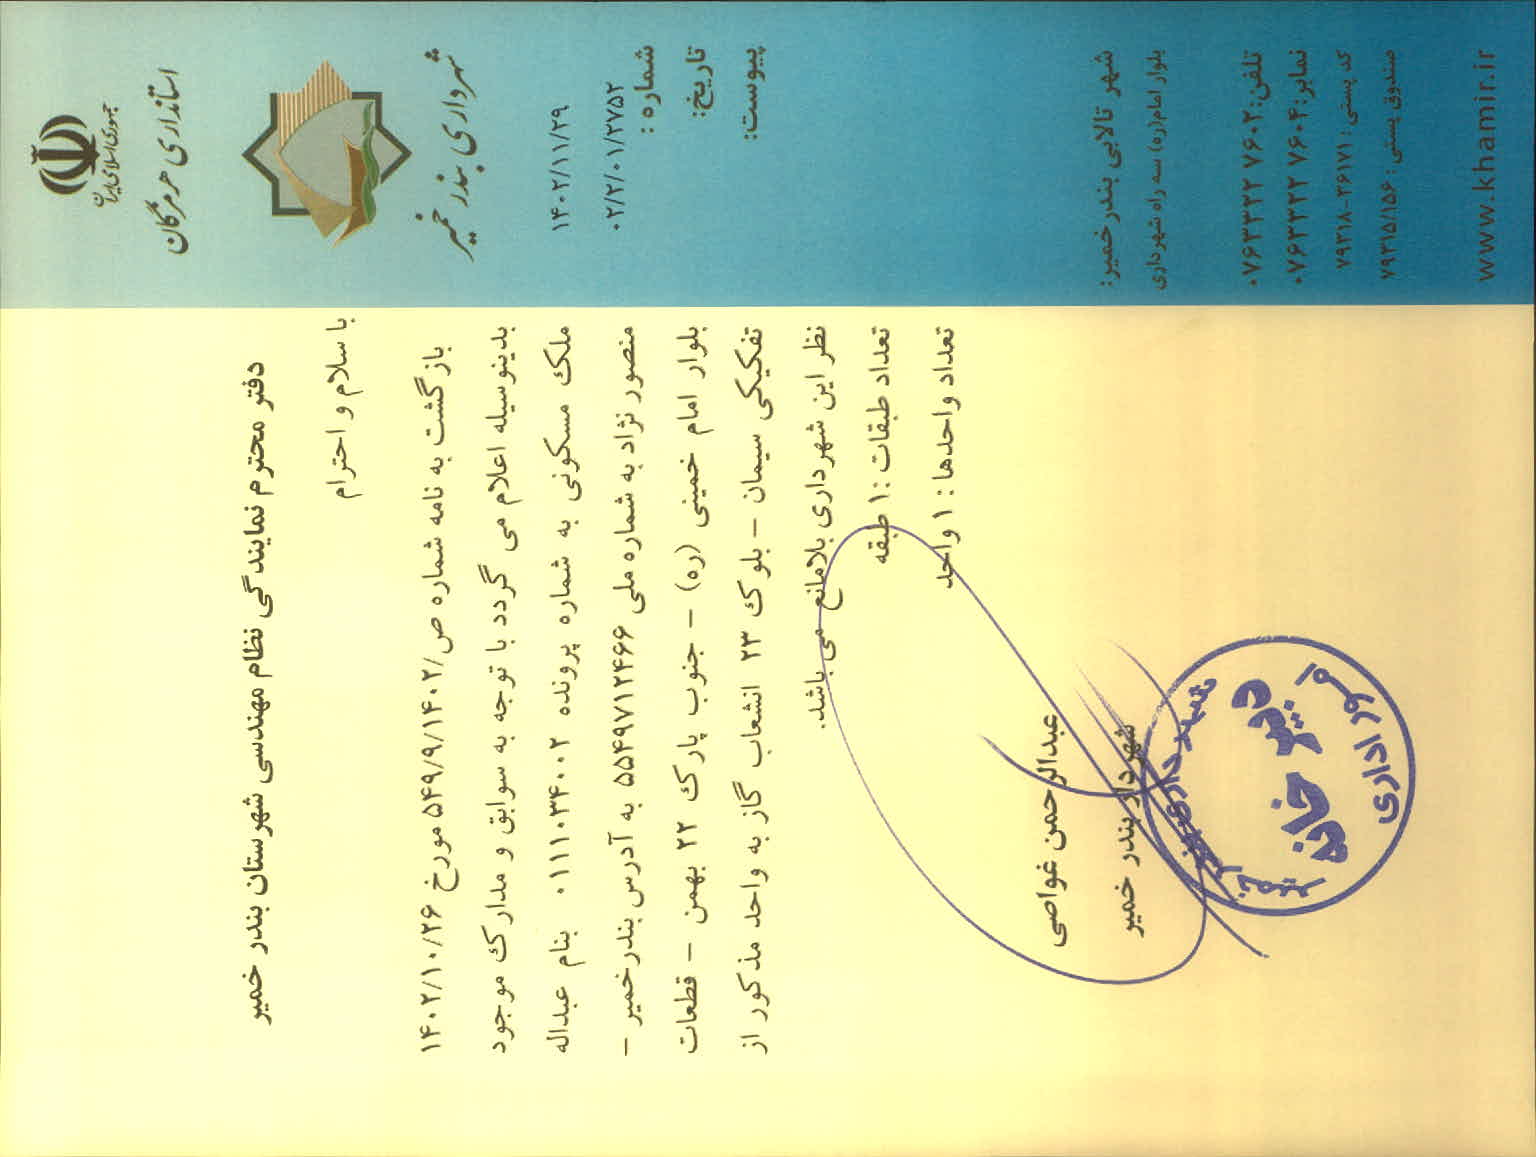 جمهوری اسلامی ایران
استانداری هرمزگان
شهرداری بندر خمیر
۱۴۰۲/۱۱/۲۹
شماره :
۰۲/۲/۰۱/۲۷۵۲
تاریخ:
پیوست:
دفتر محترم نمایندگی نظام مهندسی شهرستان بندر خمیر
با سلام و احترام
بازگشت به نامه شماره ص/۵۴۹/۹/۱۴۰۲مورخ ۱۴۰۲/۱۰/۲۶
بدینوسیله اعلام می گردد با توجه به سوابق و مدارک موجود
ملک مسکونی به شماره پرونده ۰۱۱۱۰۳۴۰۰۲ بنام عبداله
منصور نژاد به شماره ملی ۵۵۴۹۷۱۲۴۶۶ به آدرس بندرخمیر –
بلوار امام خمینی (ره) – جنوب پارک ۲۲ بهمن – قطعات
تفکیکی سیمان – بلوک ۲۳ انشعاب گاز به واحد مذکور از
نظر این شهرداری بلامانع می باشد.
تعداد طبقات :۱ طبقه
تعداد واحدها : ۱ واحد
عبدالرحمن غواصی
شهردار بندر خمیر
شهرداری بندر خمیر
دبیرخانه
امور اداری
شهر تالابی بندر خمیر:
بلوار امام(ره) سه راه شهرداری
تلفن:۰۷۶۳۳۲۲ ۷۶۰۲
نمابر:۰۷۶۳۳۲۲ ۷۶۰۴
کد پستی : ۷۹۳۱۸-۳۶۱۷۱
صندوق پستی : ۷۹۳۱۵/۱۵۶
www.khamir.ir